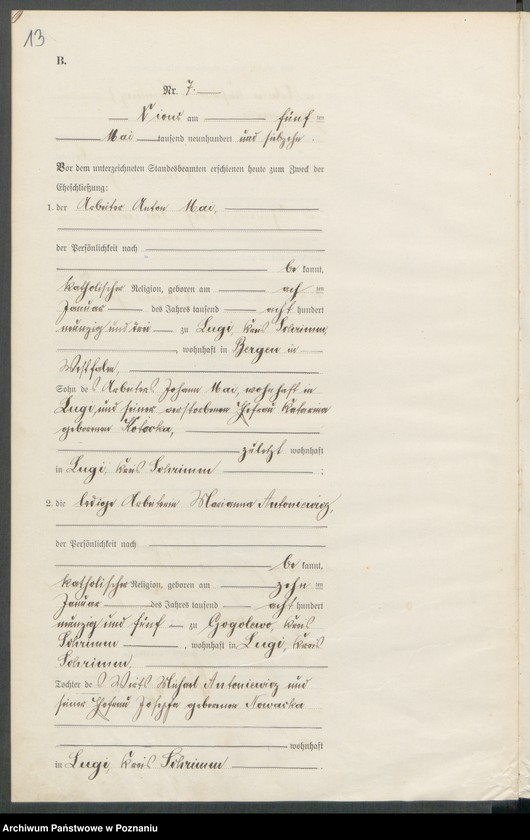 13
B.
Nr. 7.
Xions am fünf ten
Mai tausend neunhundert und siebzehn.
Vor dem unterzeichneten Standesbeamten erschienen heute zum Zweck der
Eheschließung:
1. der Arbeiter Anton Mai,
der Persönlichkeit nach
be kannt,
katholischer Religion, geboren am acht ten
Januar des Jahres tausend acht hundert
neunzig und drei zu Lugi, Kreis Schrimm,
, wohnhaft in Bergen in
Westfalen,
Sohn des Arbeiters Johann Mai, wohnhaft in
Lugi, und seiner verstorbenen Ehefrau Katarina
geborenen
zuletzt wohnhaft
in Lugi, Kreis Schrimm ;
2. die ledige Arbeiterin Marianna Antoniewicz,
der Persönlichkeit nach
be kannt,
katholischer Religion, geboren am zehn ten
Januar des Jahres tausend acht hundert
neunzig und fünf zu Gogolewo, Kreis
Schrimm , wohnhaft in Lugi, Kreis
Schrimm.
Tochter des Wirts Michael Antoniewicz und
seiner Ehefrau Josepfa geborenen Nowacka
wohnhaft
in Lugi, Kreis Schrimm .
Archiwum Państwowe w Poznaniu